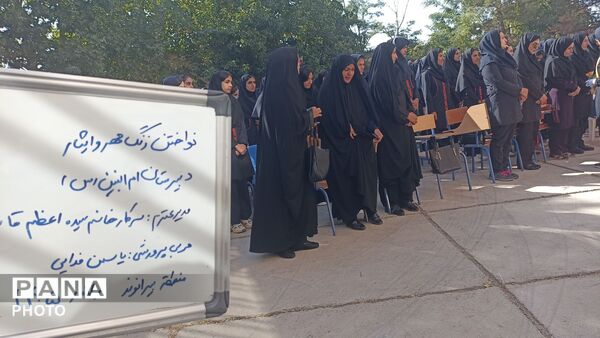 نواختن زنگ مهر و ایثار
دبیرستان ام البنین (س)
مدیر محترم: سرکار خانم سیده اعظم
مربی پرورشی: یاسمن فدایی
منطقه بیرانوند
PANA
PHOTO